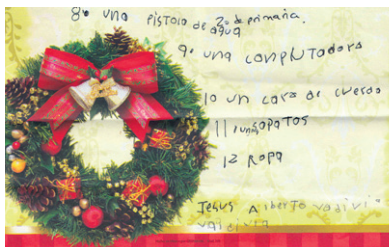 8º una pistola de agua 2º de primaria.
9º una conplutadora
10 un coro de cuerdo
11 unsopatos
12 Ropa
Jesus Alberto vadivi
valdivia